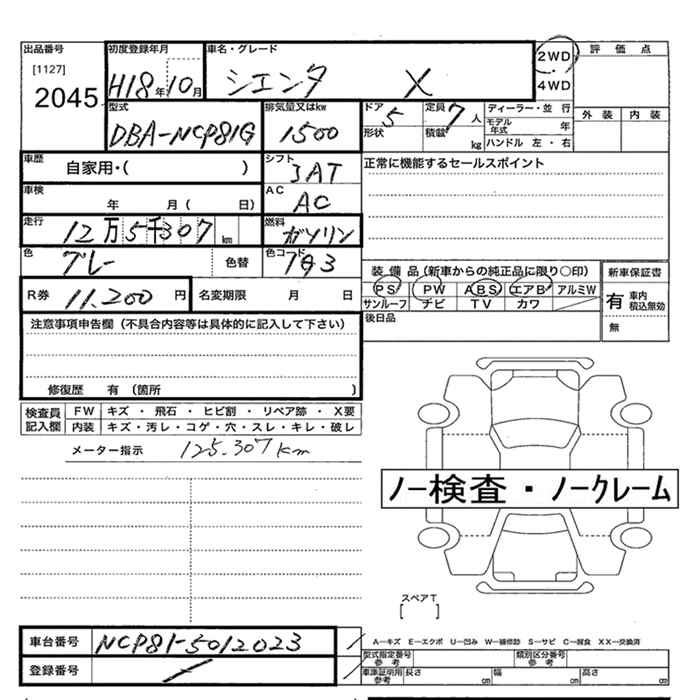 出品番号 初度登録年月 車名・グレード 2WD 評価点
[1127]
2045 H18年10月 シエンタ X 4WD
型式 排気量又はkw ドア 定員 ディーラー・並行 外装 内装
DBA-NCP81G 1500 5 7人 モデル年式 年
形状 積載 kg ハンドル 左・右
車歴 自家用・( ) シフト 正常に機能するセールスポイント
3AT
車検 年 月( 日) AC
AC
走行 12万5千307km 燃料 ガソリン
色 グレー 色替 色コード 1G3 装備品(新車からの純正品に限り〇印) 新車保証書
R券 11.200円 名変期限 月 日 PS PW ABS エアB アルミW 有 車内積込無効
サンルーフ ナビ TV カワ 無
注意事項申告欄(不具合内容等は具体的に記入して下さい) 後日品
修復歴 有(箇所 )
検査員記入欄 FW キズ・飛石・ヒビ割・リペア跡・X要
内装 キズ・汚レ・コゲ・穴・スレ・キレ・破レ
メーター指示 125.307km
ノー検査・ノークレーム
スペアT
[ ]
車台番号 NCP81-5012023 A−キズ E−エクボ U−凹み W−補修跡 S−サビ C−腐食 XX−交換済
型式指定番号参考 類別区分番号参考
登録番号 車庫証明用参考 長さ cm 幅 cm 高さ cm